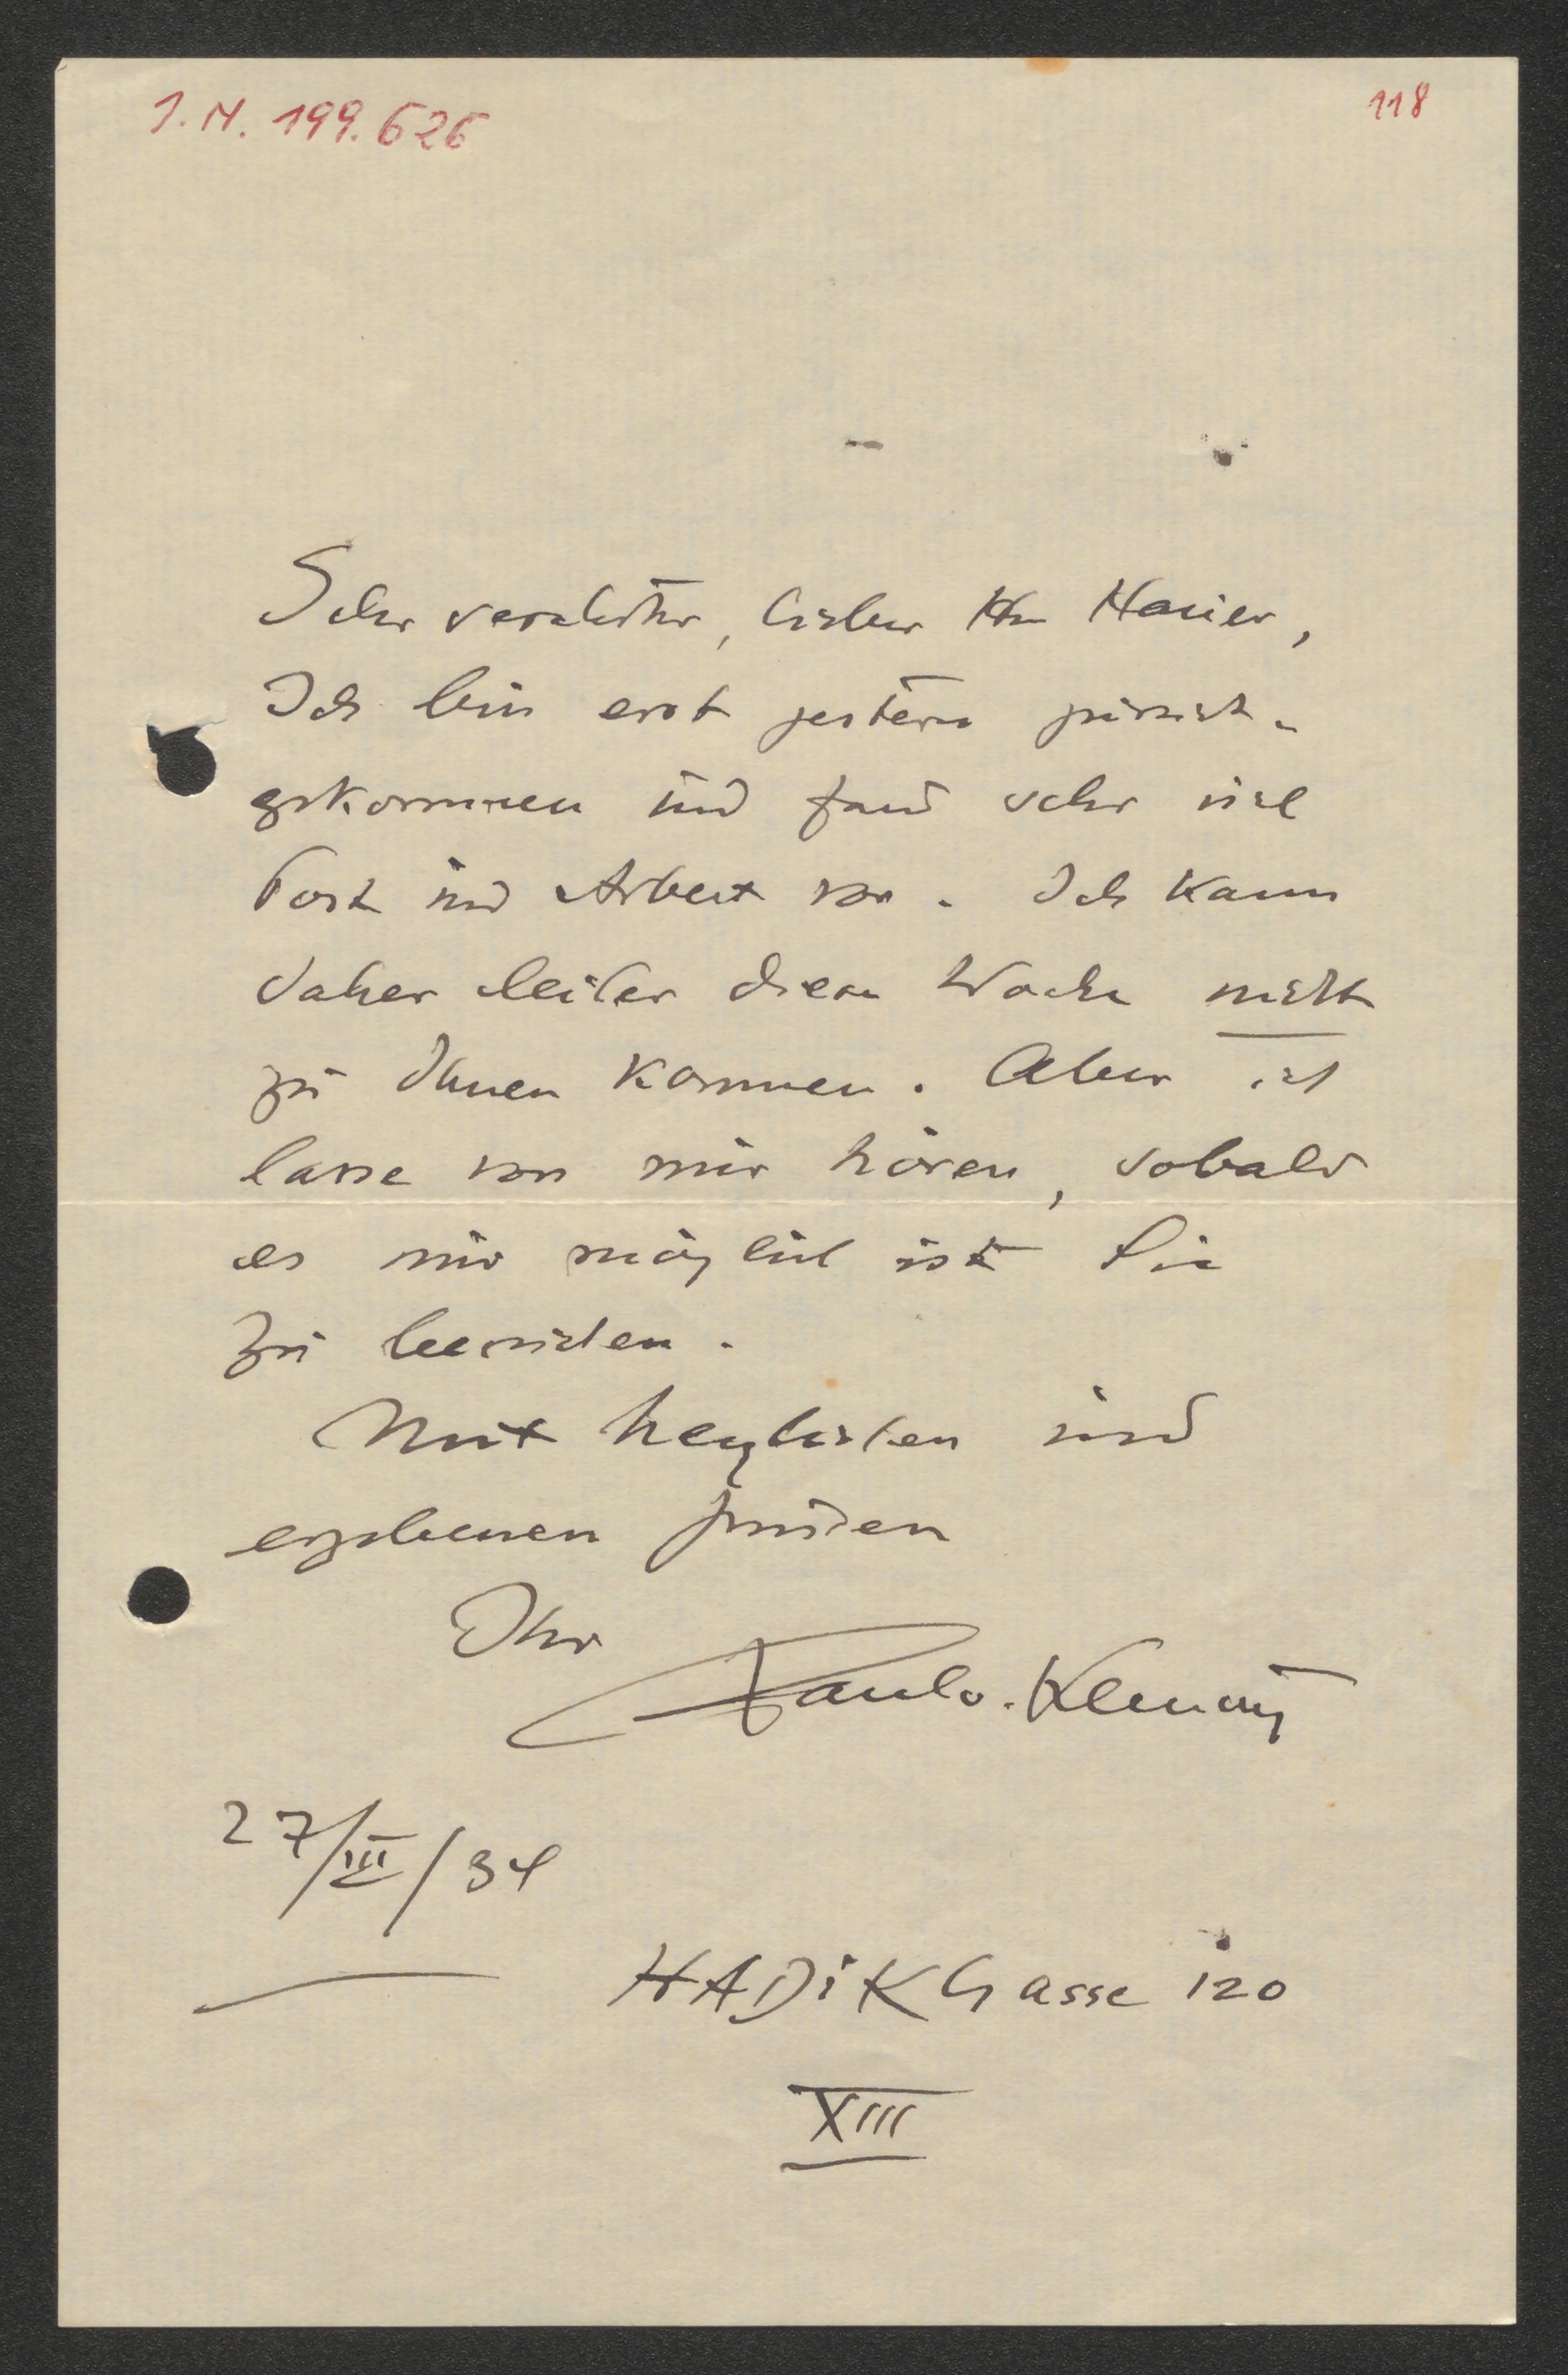 I. N. 199.626
118
Sehr verehrter, lieber Hr Hauer,
Ich bin erst gestern zurück-
gekommen und fand sehr viel
Post und Arbeit vor. Ich kann
daher leider diese Woche nicht
zu Ihnen kommen. Aber ich
lasse von mir hören, sobald
es mir möglich ist Sie
zu besuchen.
Mit herzlichen und
ergebenen Grüßen
Ihr
27/III/34
HADiKGasse 120
XIII